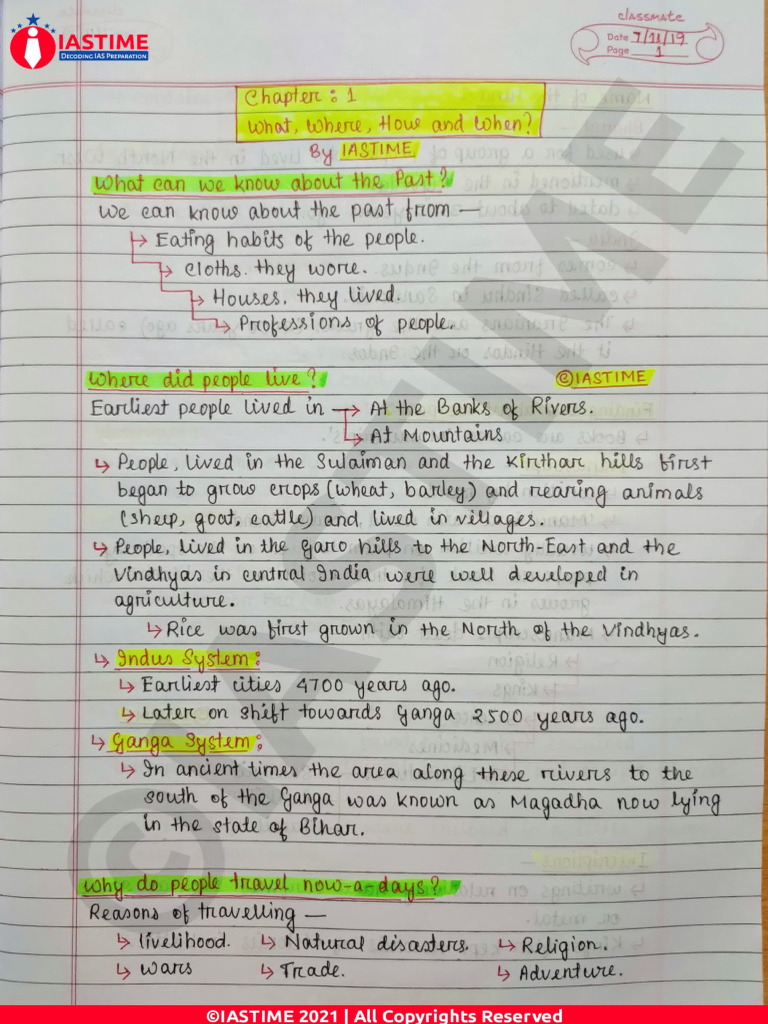 IASTIME
DECODING IAS PREPARATION
classmate
Date 7/11/19
Page 1
Chapter : 1
What, Where, How and When?
By IASTIME
What can we know about the Past?
We can know about the past from —
↳ Eating habits of the people.
↳ cloths. they wore.
↳ Houses. they lived.
↳ Professions of people.
Where did people live?
©IASTIME
Earliest people lived in → At the Banks of Rivers.
↳ At Mountains
↳ People, lived in the Sulaiman and the Kirthar hills first
began to grow crops (wheat, barley) and rearing animals
(sheep, goat, cattle) and lived in villages.
↳ People, lived in the Garo hills to the North-East and the
Vindhyas in central India were well developed in
agriculture.
↳ Rice was first grown in the North of the Vindhyas.
↳ Indus System:
↳ Earliest cities 4700 years ago.
↳ Later on shift towards Ganga 2500 years ago.
↳ Ganga System:
↳ In ancient times the area along these rivers to the
south of the Ganga was known as Magadha now lying
in the state of Bihar.
Why do people travel now-a-days?
Reasons of travelling —
↳ livelihood. ↳ Natural disasters. ↳ Religion.
↳ wars ↳ Trade. ↳ Adventure.
©IASTIME
©IASTIME 2021 | All Copyrights Reserved